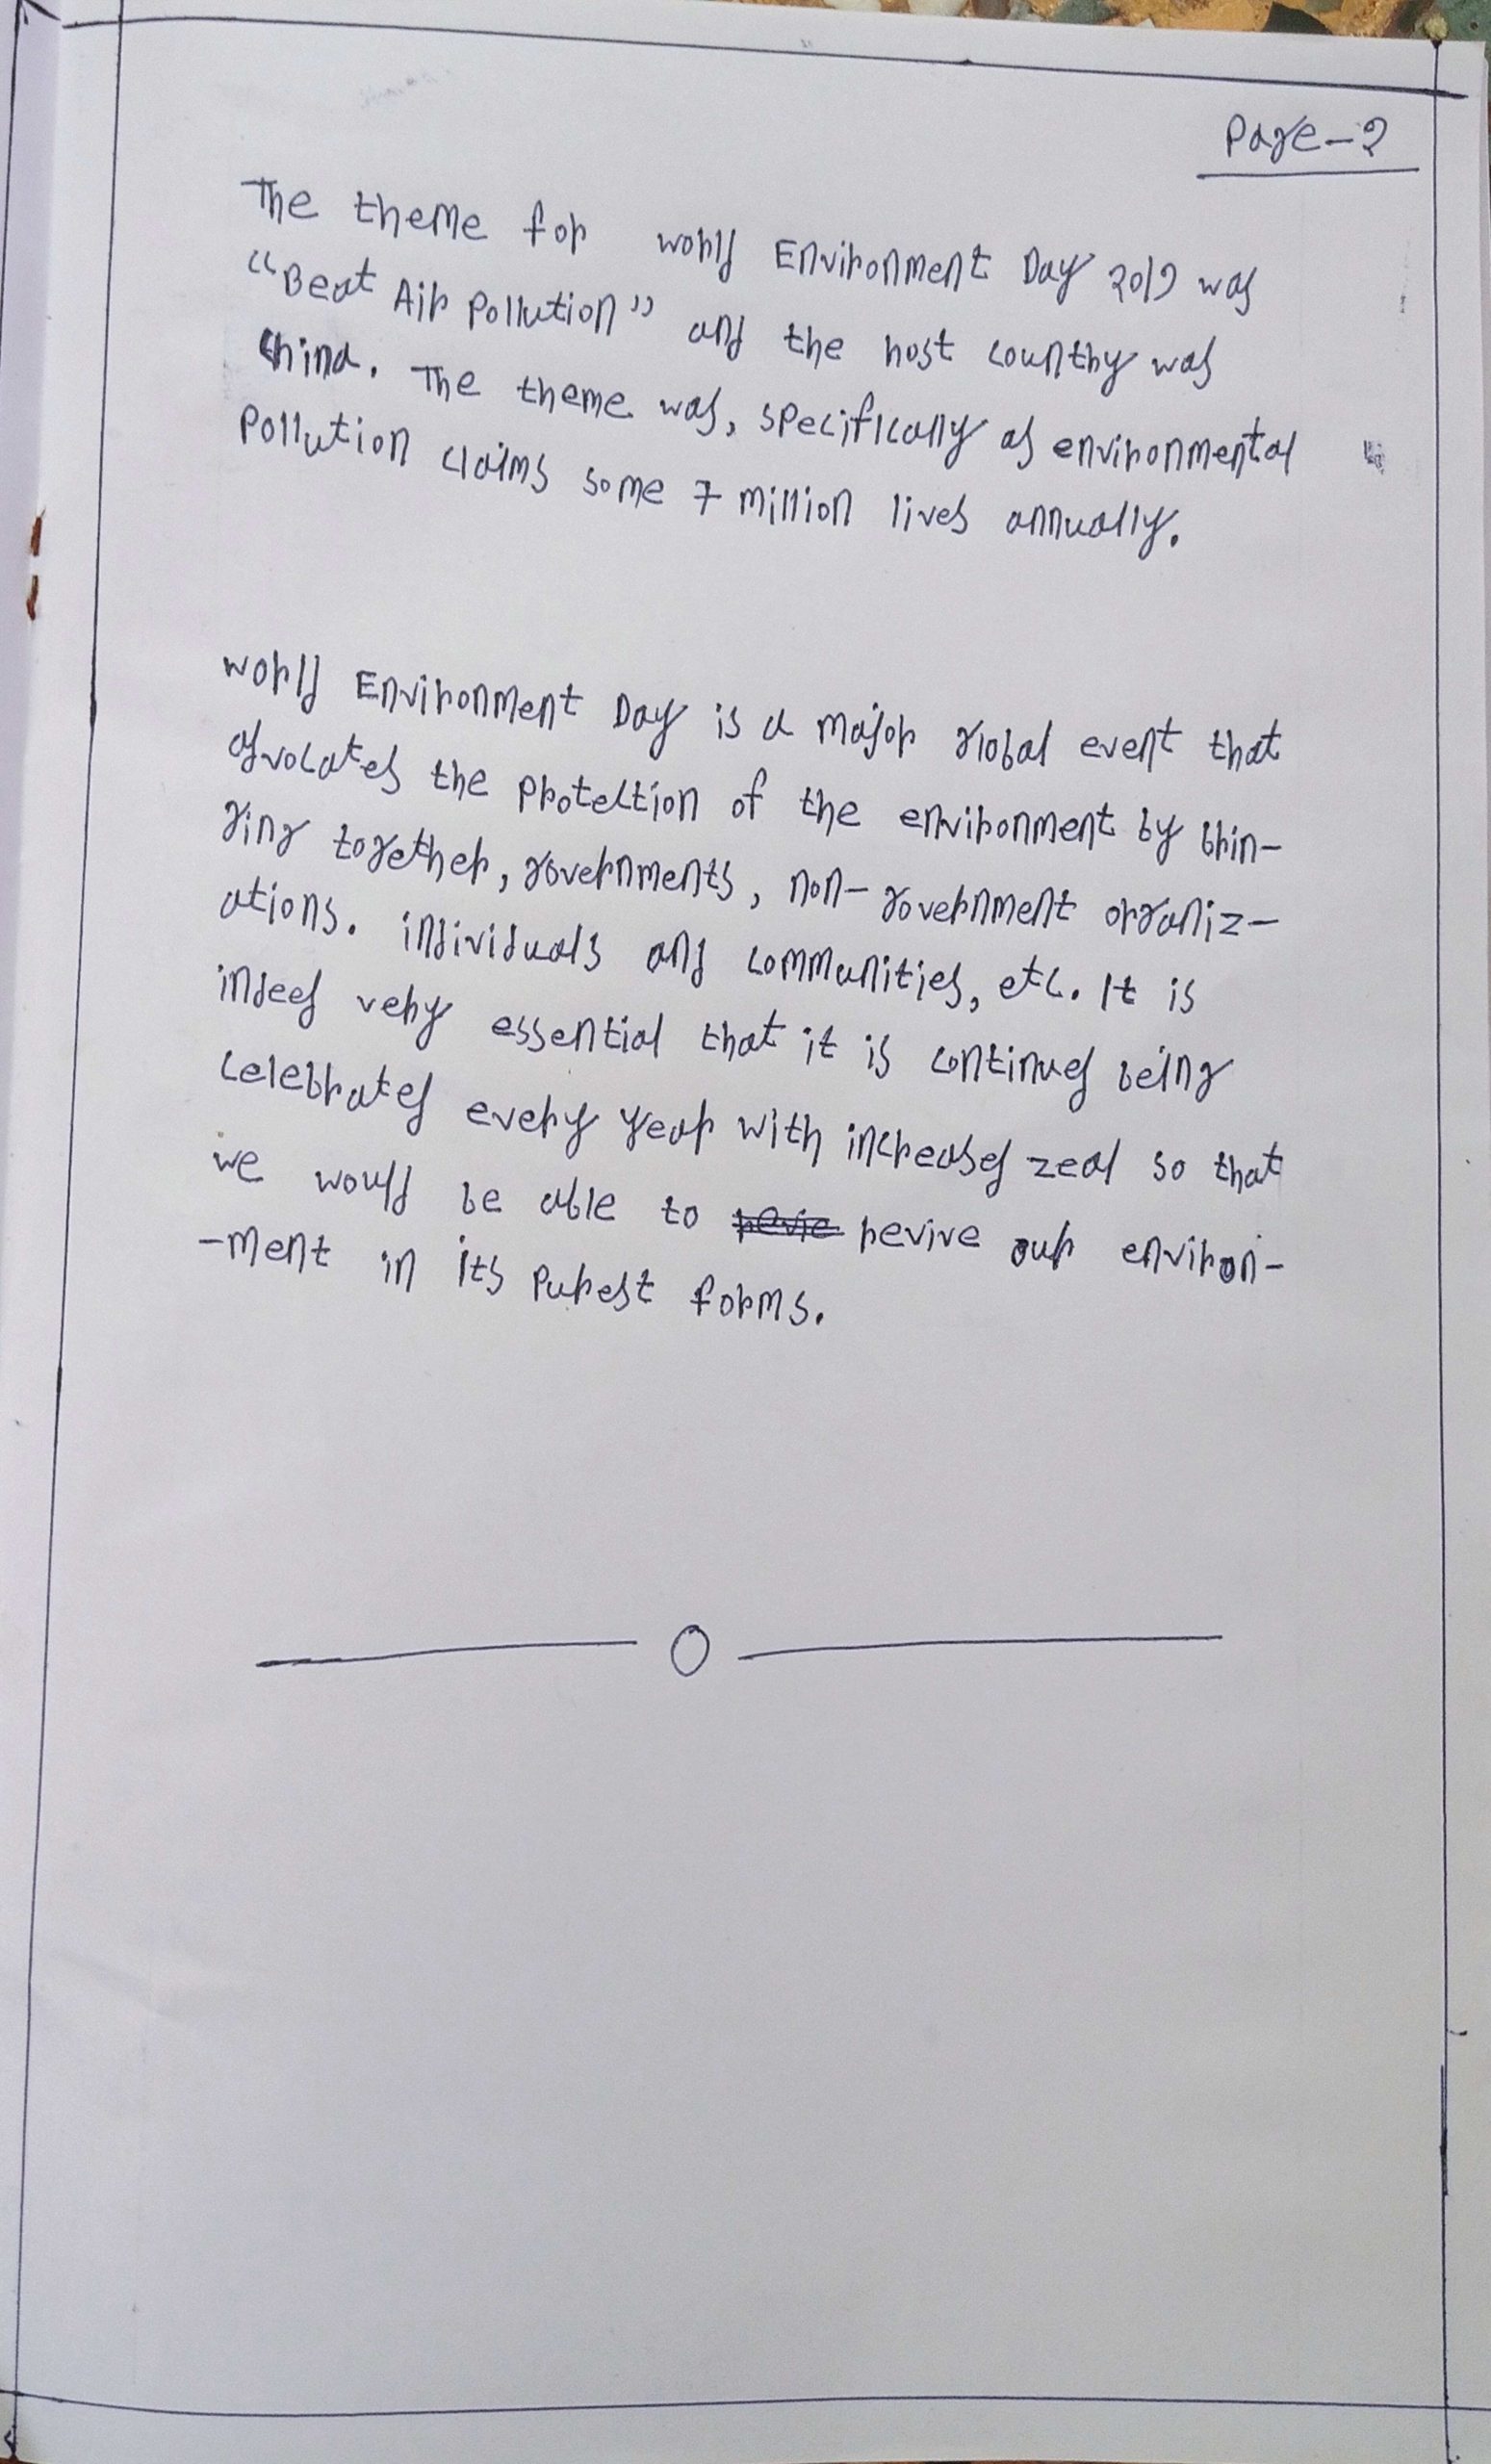 Page-2
The theme for world Environment Day 2019 was
"Beat Air Pollution" and the host country was
China. The theme was, specifically as environmental
Pollution claims some 7 million lives annually.
World Environment Day is a major global event that
advocates the protection of the environment by brin-
ging together, governments, non-government organiz-
ations. individuals and communities, etc. It is
indeed very essential that it is continued being
celebrated every year with increased zeal so that
we would be able to revive our environ-
-ment in its purest forms.